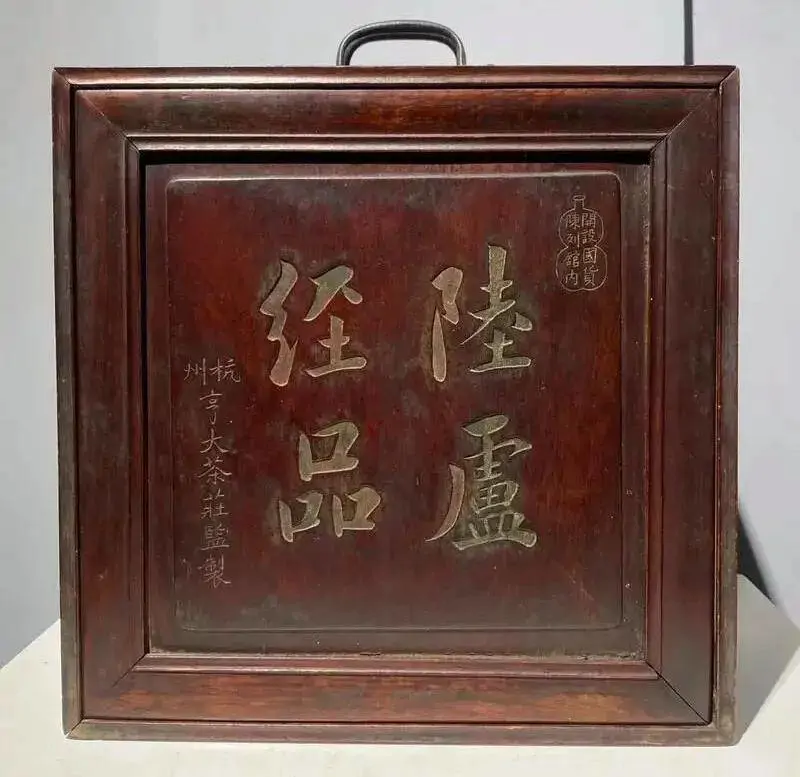 開設國貨
陳列館內
陸盧
經品
杭州亨大茶莊監製